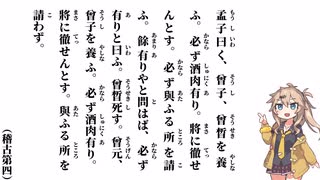 孟子曰く、曾子、曾皙を養
ふ。必ず酒肉有り。將に徹せ
んとす。必ず與ふる所を請
ふ。餘有りやと問はば、必ず
有りと曰ふ。曾皙死す。曾元、
曾子を養ふ。必ず酒肉有り。
將に徹せんとす。與ふる所を
請わず。
（稽古第四）